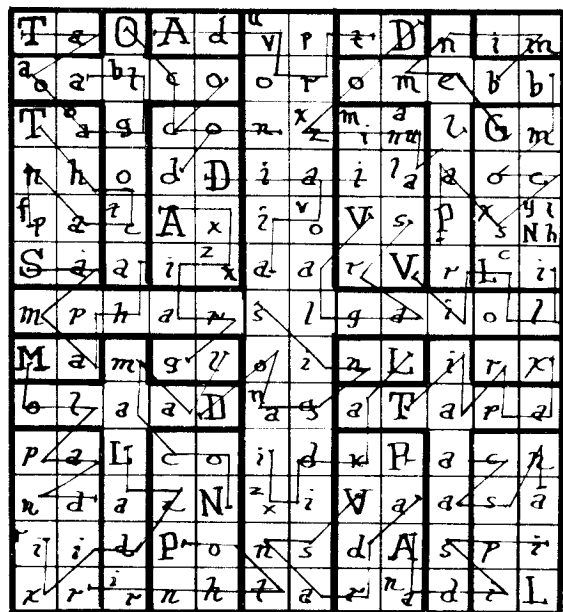 T a O A d u v p t D n i m
a o a b t c o o r o m e b b
T o a g c o n x z m i a n u l G m
n h o d D i a i l a a o c
f p a t c A x i v o V s P x s y i N h
S a a i z x a a r V r L c i
m p h a r s l g a i o l
M a m g v o i n L i r x
o l a a D n a g a T a p a
p a L c o i d x P a c n
n d a z N z x i V a a s a
r i i d P o n s d A s p i
x r i r n h t a r n a d i L